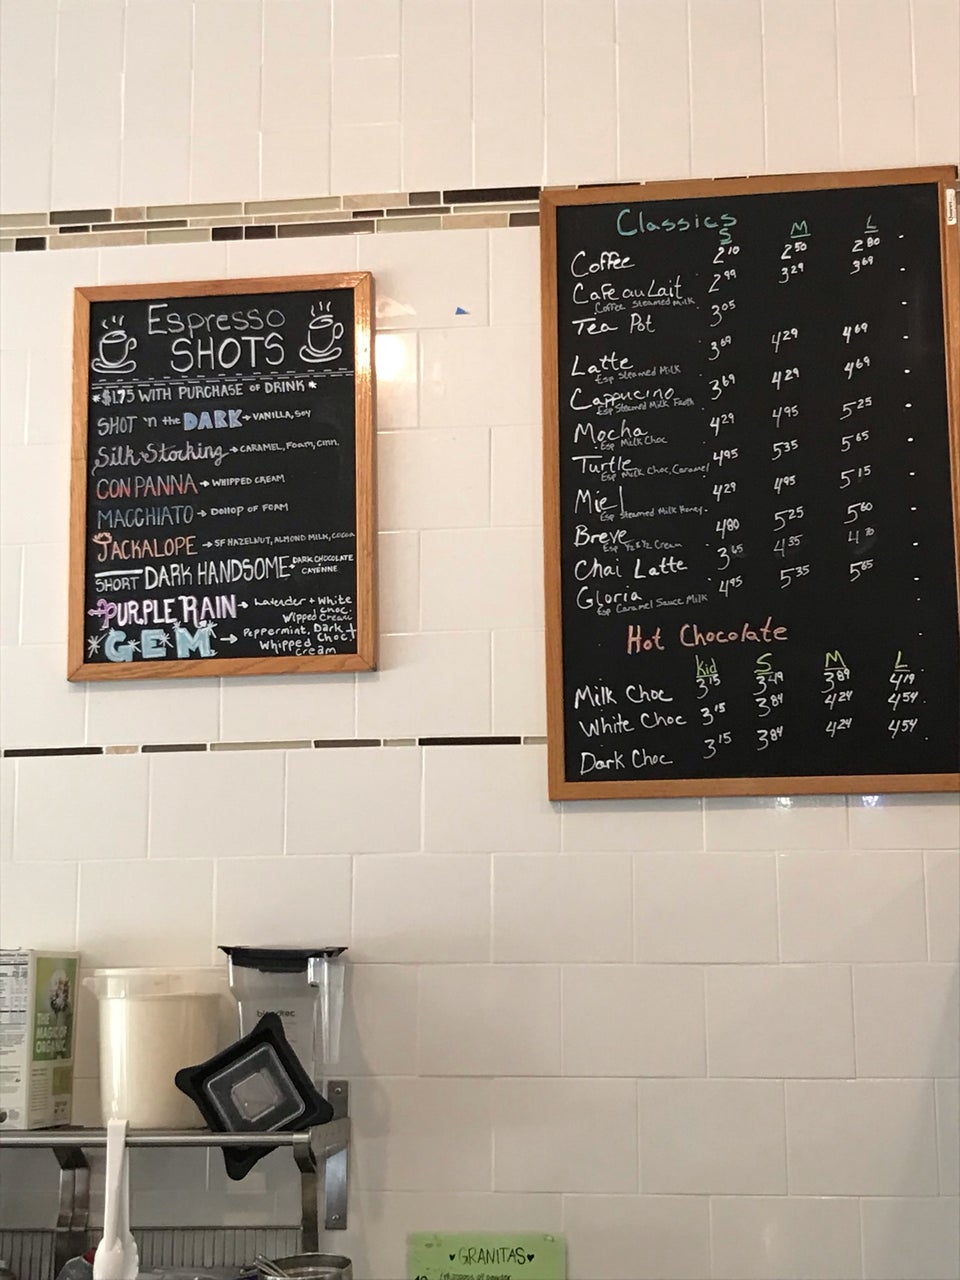 Espresso
SHOTS
*$1.75 WITH PURCHASE OF DRINK*
SHOT 'n the DARK → VANILLA, SOY
Silk Stocking → CARAMEL, FOAM, CINN.
CON PANNA → WHIPPED CREAM
MACCHIATO → DOLLOP OF FOAM
JACKALOPE → SF HAZELNUT, ALMOND MILK, COCOA
SHORT DARK HANDSOME → DARK CHOCOLATE
CAYENNE
PURPLE RAIN → Lavender + White
Choc.
Wipped Cream
GEM → Peppermint, Dark
Choc +
Whipped
Cream
Classics
S M L
Coffee 2.10 2.50 2.80
Cafe au Lait 2.99 3.29 3.69
Coffee Steamed Milk
Tea Pot 3.05
Latte 3.69 4.29 4.69
Esp Steamed Milk
Cappucino 3.69 4.29 4.69
Esp Steamed Milk Froth
Mocha 4.29 4.95 5.25
Esp Milk Choc
Turtle 4.95 5.35 5.65
Esp Milk Choc, Caramel
Miel 4.29 4.95 5.15
Esp Steamed Milk Honey
Breve 4.80 5.25 5.60
Esp ½ & ½ Cream
Chai Latte 3.65 4.35 4.70
Gloria 4.95 5.35 5.65
Esp Caramel Sauce Milk
Hot Chocolate
Kid S M L
Milk Choc 3.15 3.49 3.89 4.19
White Choc 3.15 3.84 4.24 4.54
Dark Choc 3.15 3.84 4.24 4.54
THE
MAGIC OF
ORGANIC
blendtec
♥GRANITAS♥